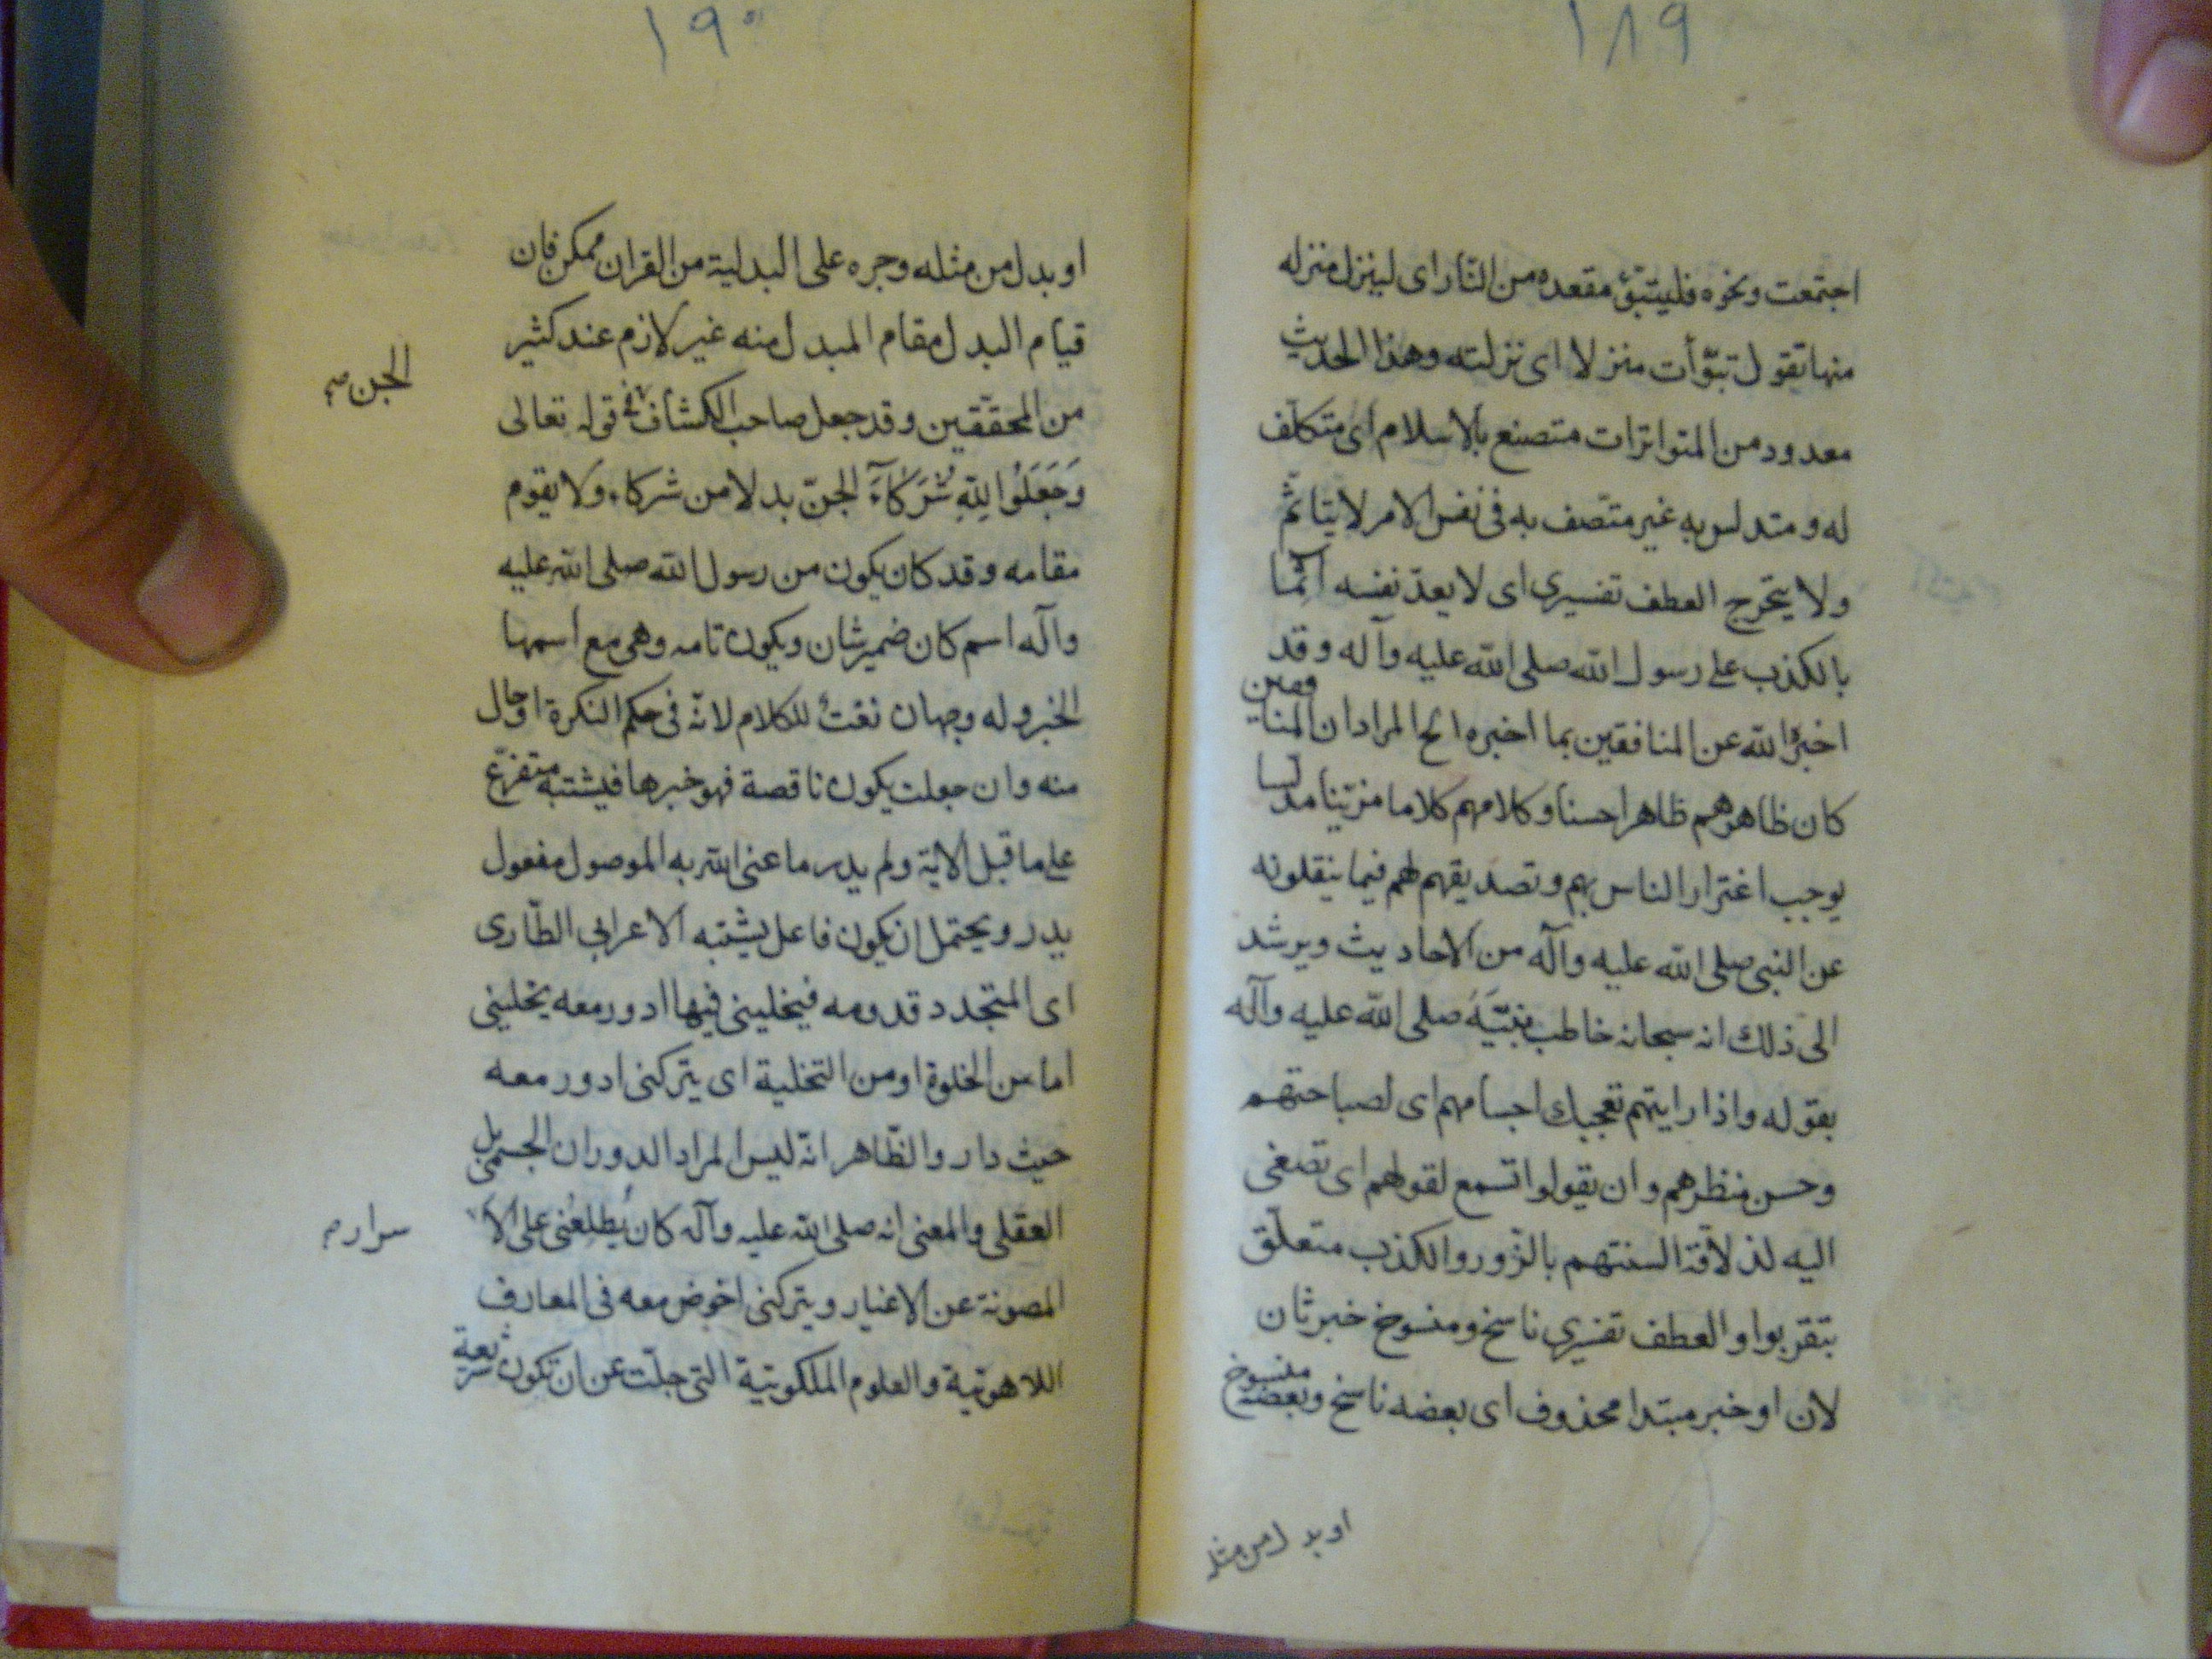 ١٨٩
اجتمعت ونحوه فليتبؤ مقعده من النّار اى لينزل منزله
منها تقول تبوّأت منزلا اى نزلته وهذا الحديث
معدود من المتواترات متصنع بالاسلام اى متكلف
له ومتدلس به غير متصف به فى نفس الامر لا يتاثّم
ولا يتحرج العطف تفسيرى اى لا يعدّ نفسه آثما
بالكذب على رسول الله صلى الله عليه وآله وقد
اخبره الله عن المنافقين بما اخبره الخ المراد ان المنافقين
كان ظاهرهم ظاهرا حسنا وكلامهم كلاما مزيّنا مدلسا
يوجب اغترار الناس بهم وتصديقهم لهم فيما ينقلونه
عن النبى صلى الله عليه وآله من الاحاديث ويرشد
الى ذلك انه سبحانه خاطب نبيّه صلى الله عليه وآله
بقوله واذا رايتهم تعجبك اجسامهم اى لصباحتهم
وحسن منظرهم وان يقولوا تسمع لقولهم اى تصغى
اليه لذلاقة السنتهم بالزّور والكذب متعلّق
بتقربوا والعطف تفسيرى ناسخ ومنسوخ خبر ثان
لان او خبر مبتدا محذوف اى بعضه ناسخ وبعضه منسوخ
او بدل من مثله
١٩٠
او بدل من مثله وجره على البدلية من القران ممكن فان
قيام البدل مقام المبدل منه غير لازم عند كثير
من المحقّقين وقد جعل صاحب الكشاف فى قوله تعالى
الجن صح
وَجَعَلُوا لِلّهِ شُرَكَآءَ الجنّ بدلا من شركاء ولا يقوم
مقامه وقد كان يكون من رسول الله صلى الله عليه
وآله اسم كان ضمير شان ويكون تامه وهى مع اسمها
الخبر وله وجهان نعتٌ للكلام لانّه فى حكم النكرة او حال
منه وان جعلت يكون ناقصة فهو خبرها فيشتبه متفرّع
على ما قبل الاية ولم يدر ما عنى الله به الموصول مفعول
يدر ويحتمل ان يكون فاعل يشتبه الاعرابي الطّارى
اى المتجدد قدومه فيخلينى فيها ادور معه يخلينى
اما من الخلوة او من التخلية اى يتركنى ادور معه
حيث دار والظّاهر انّه ليس المراد الدوران الجسمى بل
العقلى والمعنى انه صلى الله عليه وآله كان يُطلِعُنى على الا
سرار م
المصونة عن الاغيار ويتركنى اخوض معه فى المعارف
اللاهوتية والعلوم الملكوتية التى جلّت عن ان تكون شريعة